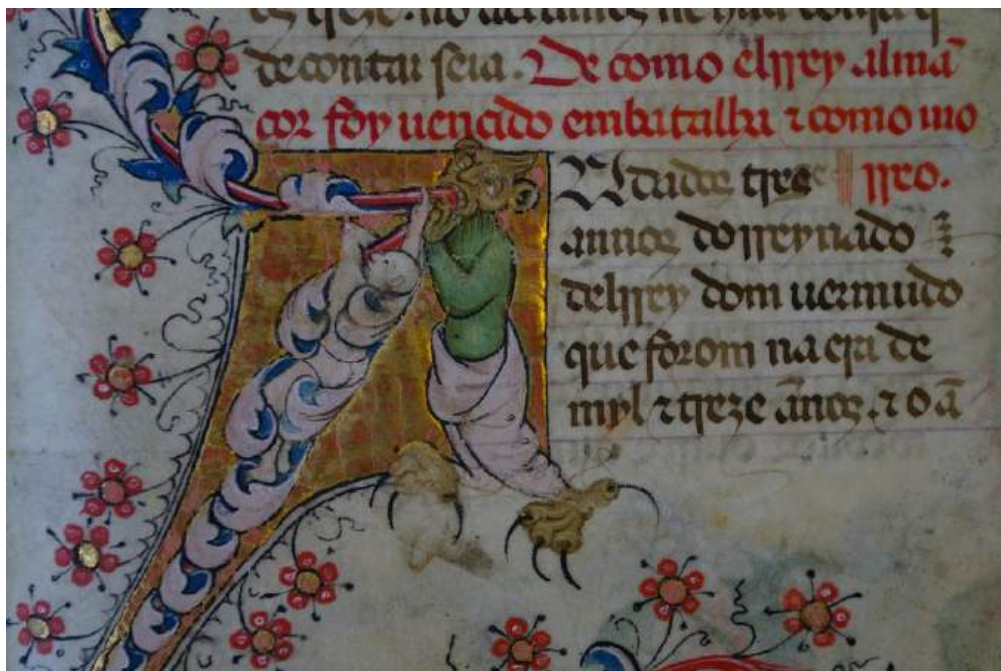 de contar seia. De como elrrey almã
cor foy uencido em batalha ⁊ como mo
Andados tres rreo.
annos do rreynado
delrrey dom uermudo
que forom na era de
myl ⁊ treze ãnos. ⁊ o ã